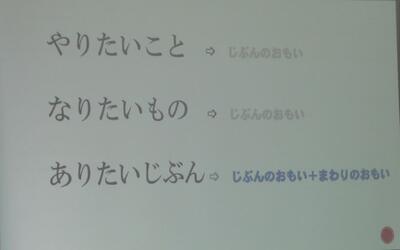 やりたいこと ⇨ じぶんのおもい
なりたいもの ⇨ じぶんのおもい
ありたいじぶん ⇨ じぶんのおもい＋まわりのおもい